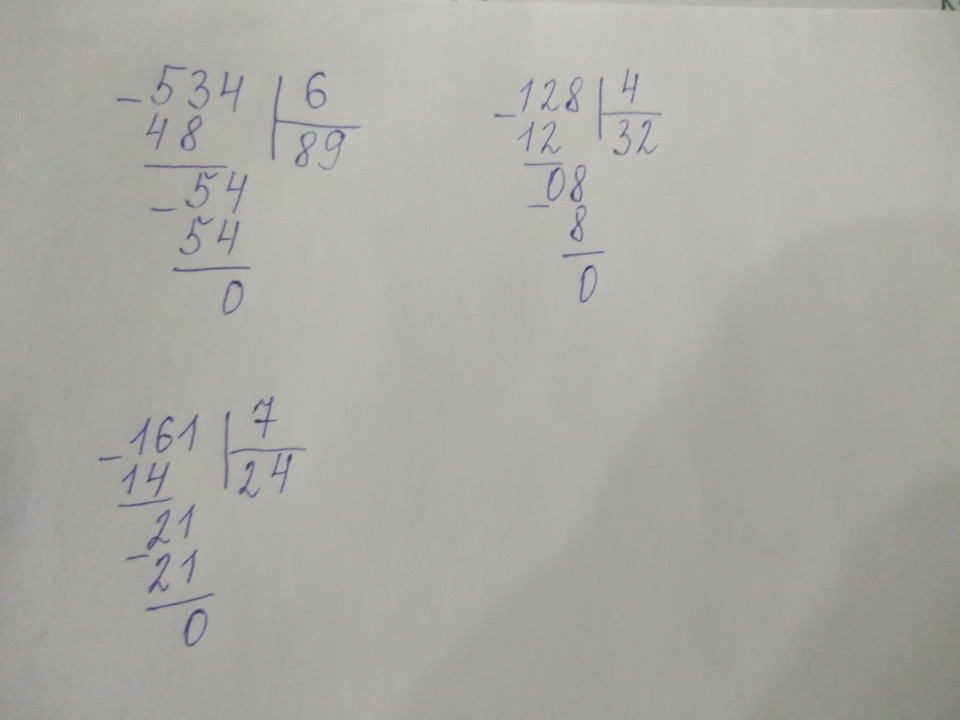 -534 | 6
48 | 89
-54
54
0
-128 | 4
12 | 32
-08
8
0
-161 | 7
14 | 24
-21
21
0